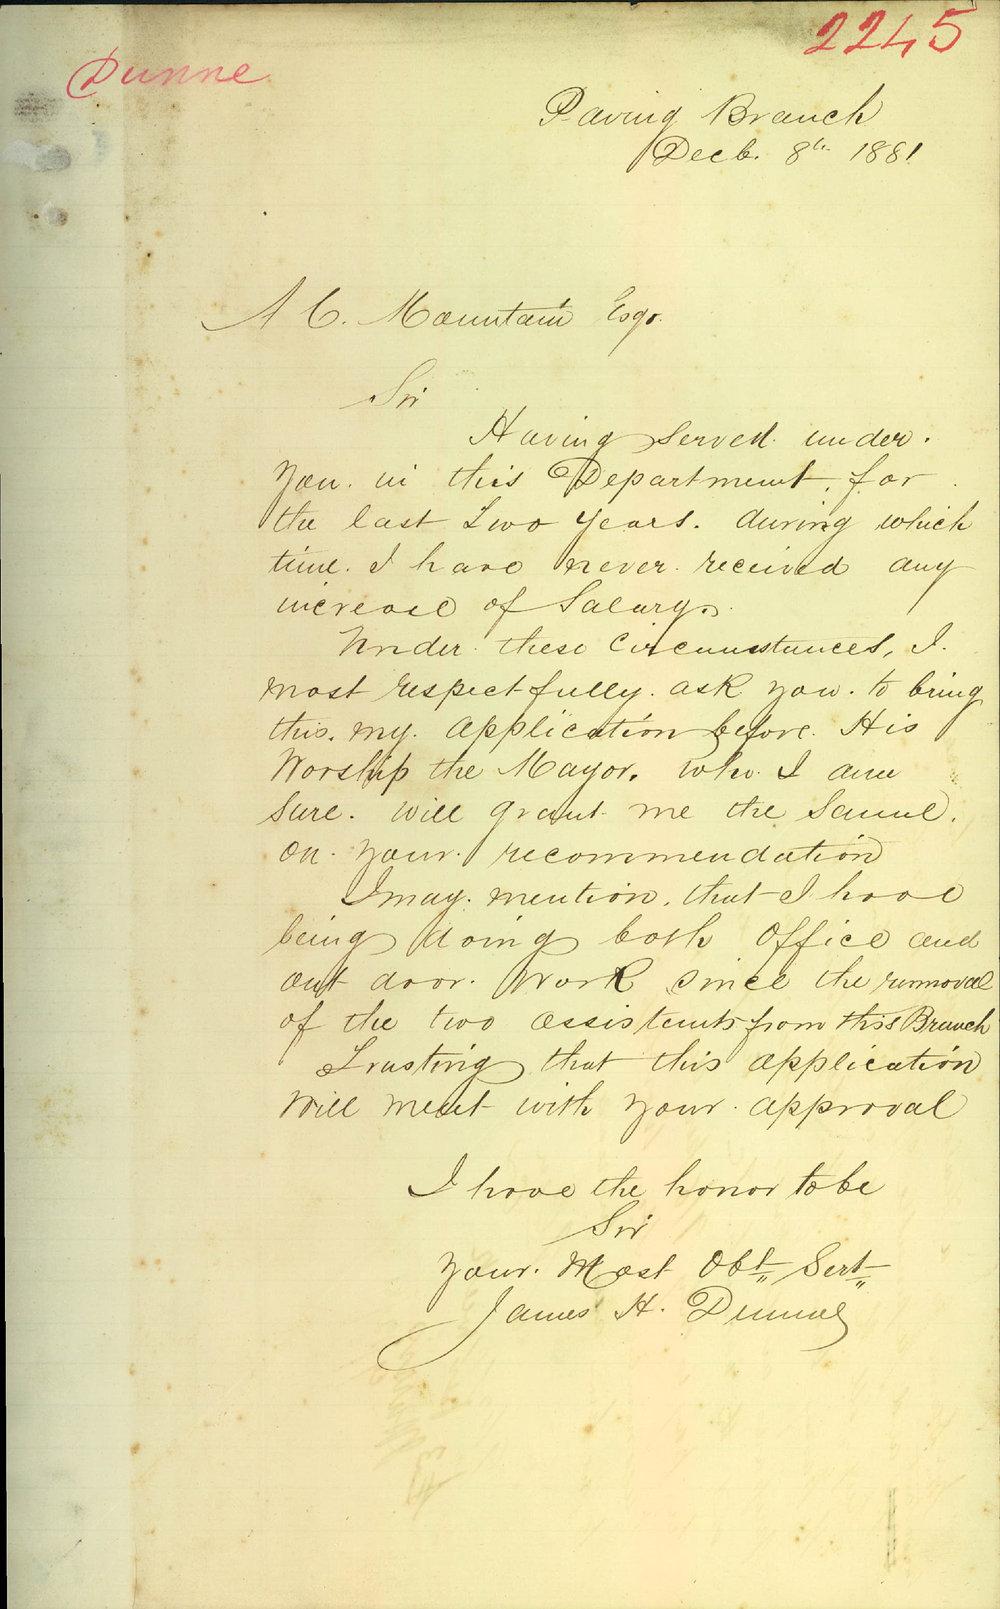 2245
Dunne
Paving Branch
Decb. 8th 1881
A C. Mountain Esqr.
Sir
Having served under.
You. in this Department, for
the last Two Years. during which
time. I have never received any
increase of Salary.
Under these Circumstances, I.
most respectfully. ask you. to bring
this. my. application before. His
Worship the Mayor. who. I am
sure. will grant me the Same.
on. your. recommendation
I may. mention. that I have
being doing both Office and
out door. Work since the removal
of the two assistants from this Branch
Trusting that this application
Will meet with your. approval
I have the honor to be
Sir
Your. Most Obt Sert
James H. Dunne